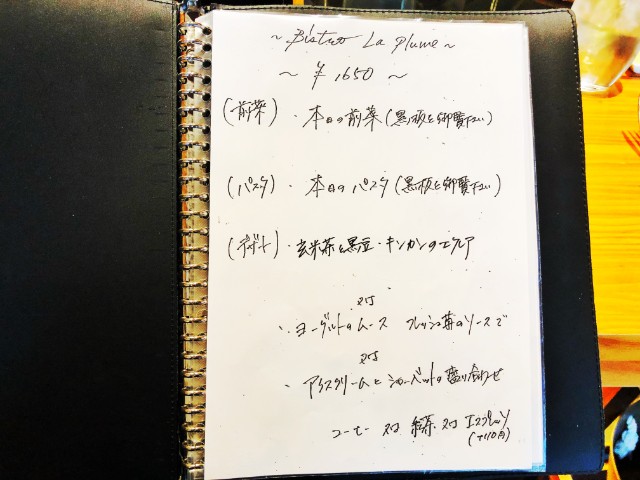 ~ Bistro La plume ~
~ ¥ 1650 ~
(前菜) ・ 本日の前菜 (黒板を御覧下さい)
(パスタ) ・ 本日の パスタ (黒板を御覧下さい)
(デザート) ・ 玄米茶と黒豆・キンカンのエクレア
又は
・ ヨーグルトのムース フレッシュ苺のソースで
又は
・ アイスクリームとシャーベットの盛り合わせ
コーヒー 又は 紅茶 又は エスプレッソ
(+110円)